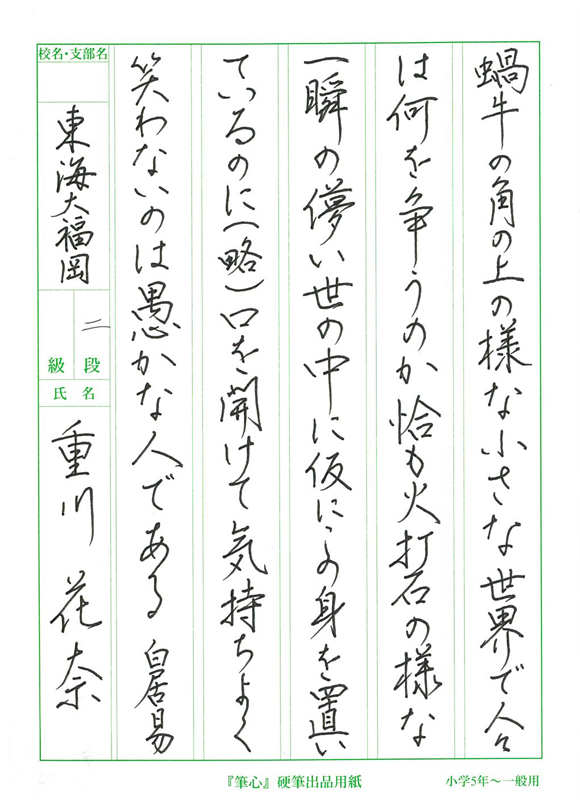 蝸牛の角の上の様な小さな世界で人々
は何を争うのか恰も火打石の様な
一瞬の儚い世の中に仮にこの身を置い
ているのに(略)口を開けて気持ちよく
笑わないのは愚かな人である 白居易
校名・支部名
東海大福岡
二
段
級
氏名
重川 花奈
『筆心』硬筆出品用紙
小学5年〜一般用